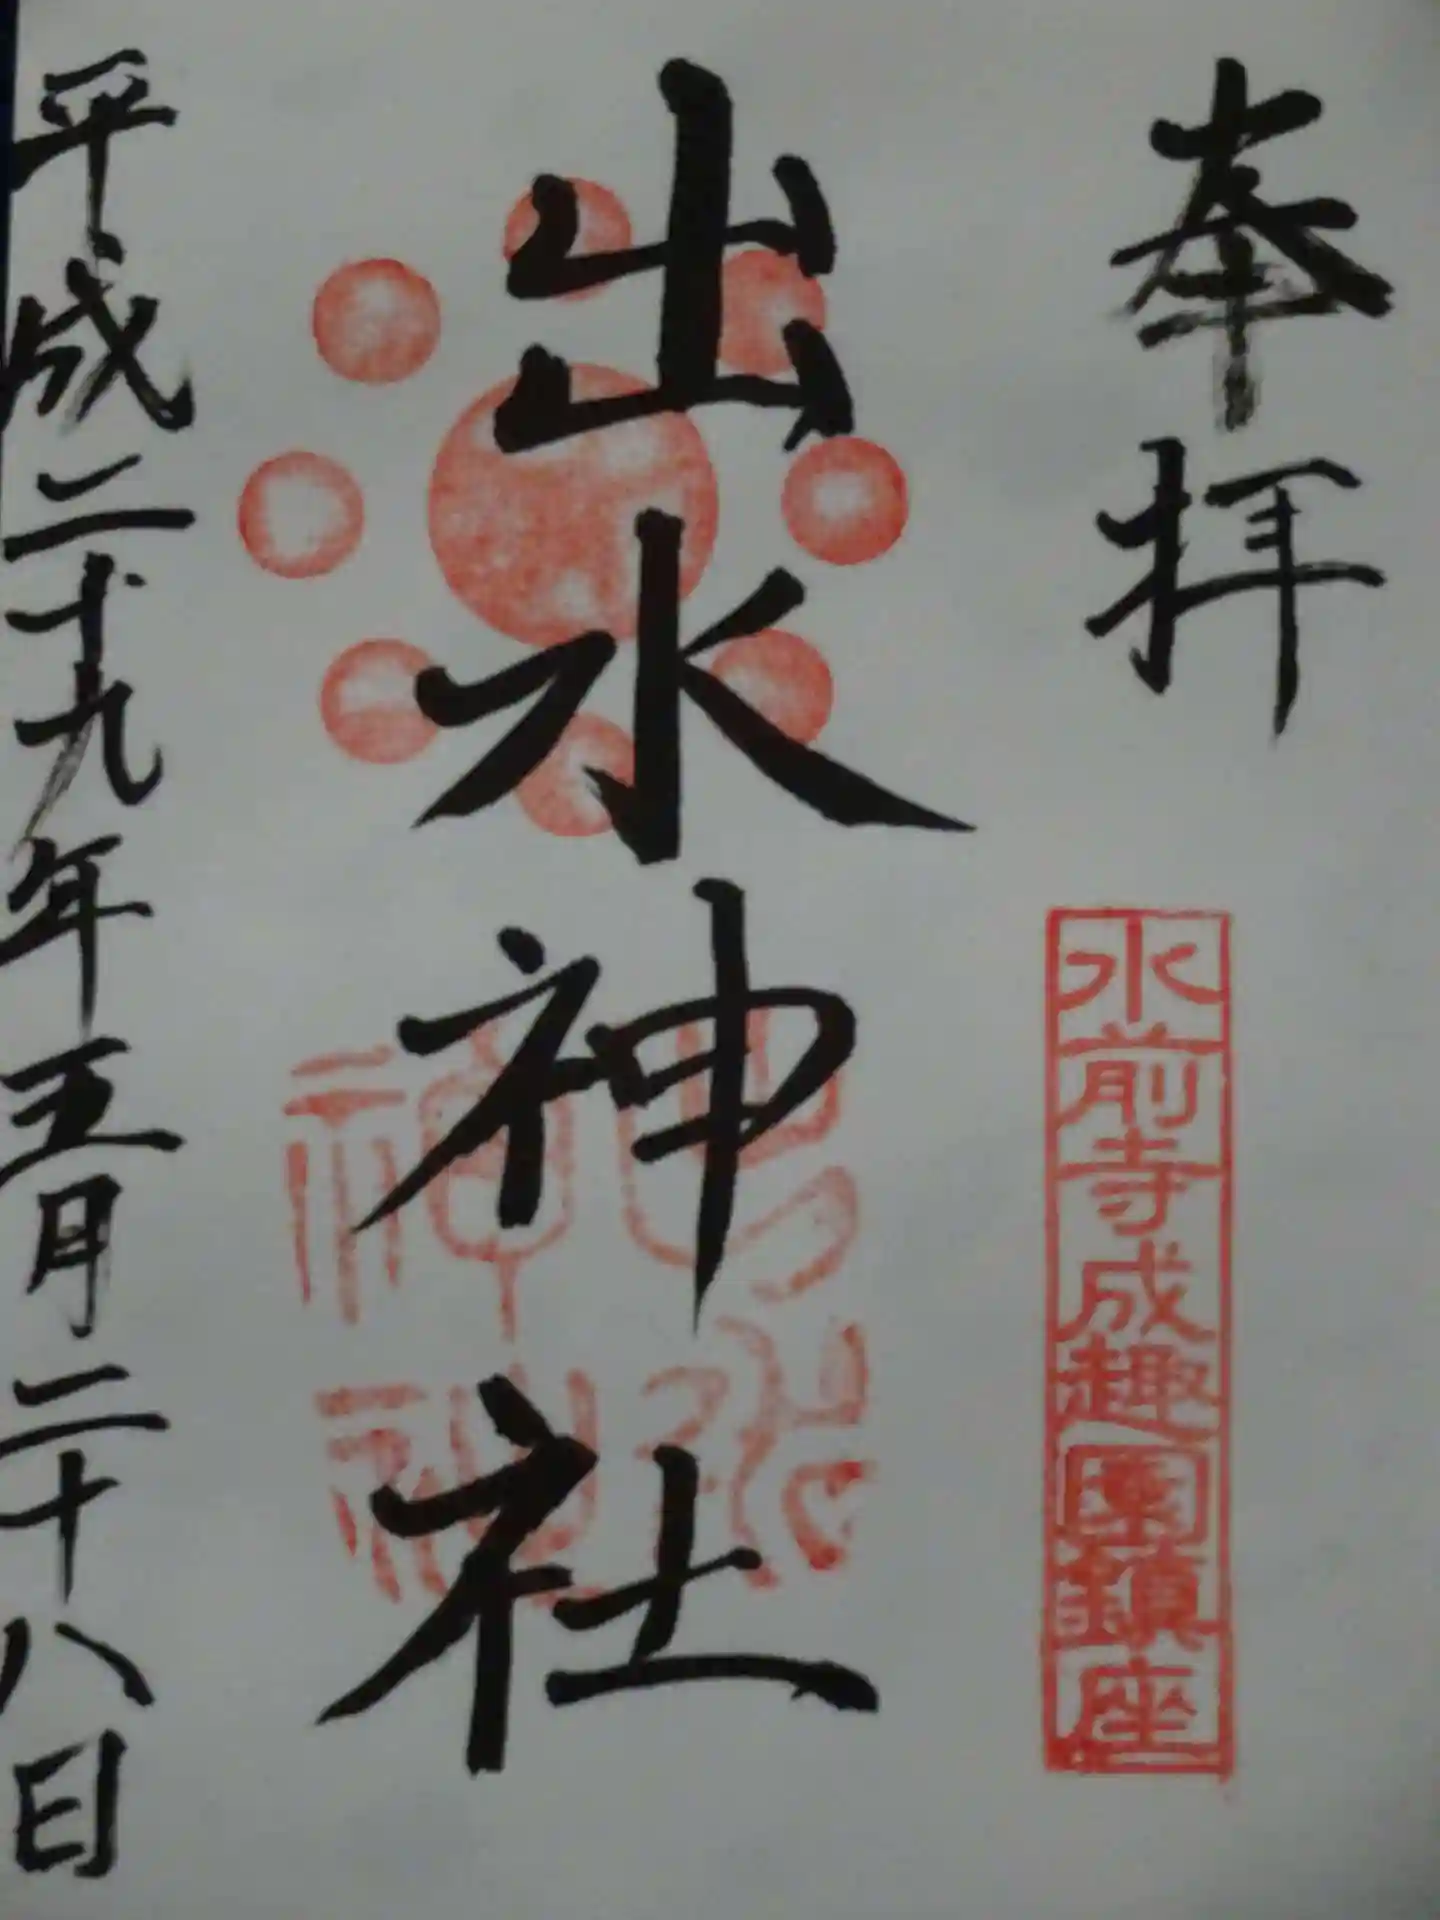 奉拝
水前寺成趣園鎮座
出水神社
出水神社
平成二十九年五月二十八日